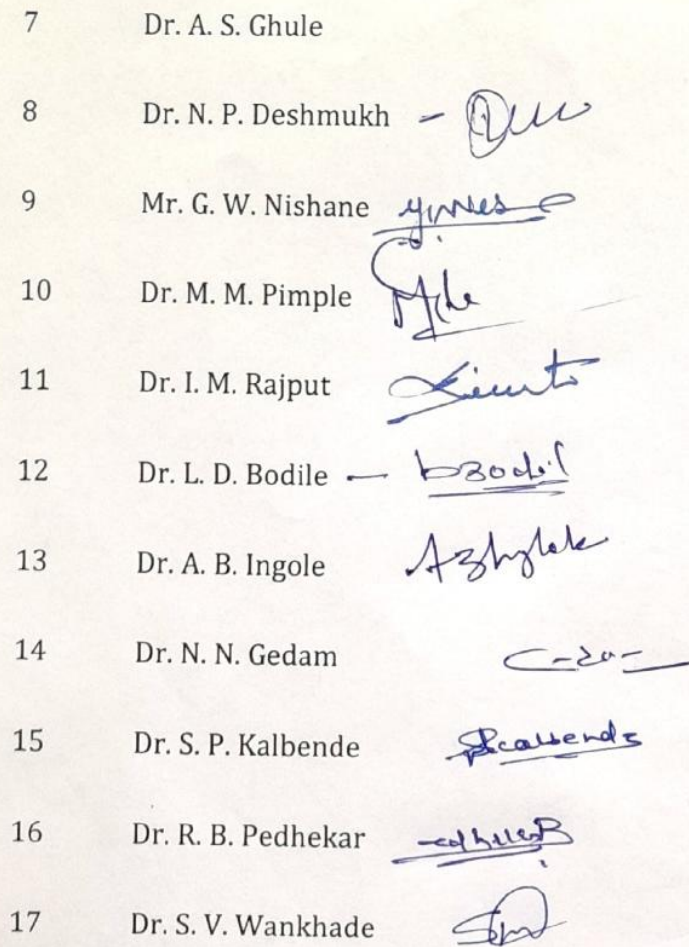 7 Dr. A. S. Ghule
8 Dr. N. P. Deshmukh -
9 Mr. G. W. Nishane
10 Dr. M. M. Pimple
11 Dr. I. M. Rajput
12 Dr. L. D. Bodile -
13 Dr. A. B. Ingole
14 Dr. N. N. Gedam
15 Dr. S. P. Kalbende
16 Dr. R. B. Pedhekar
17 Dr. S. V. Wankhade